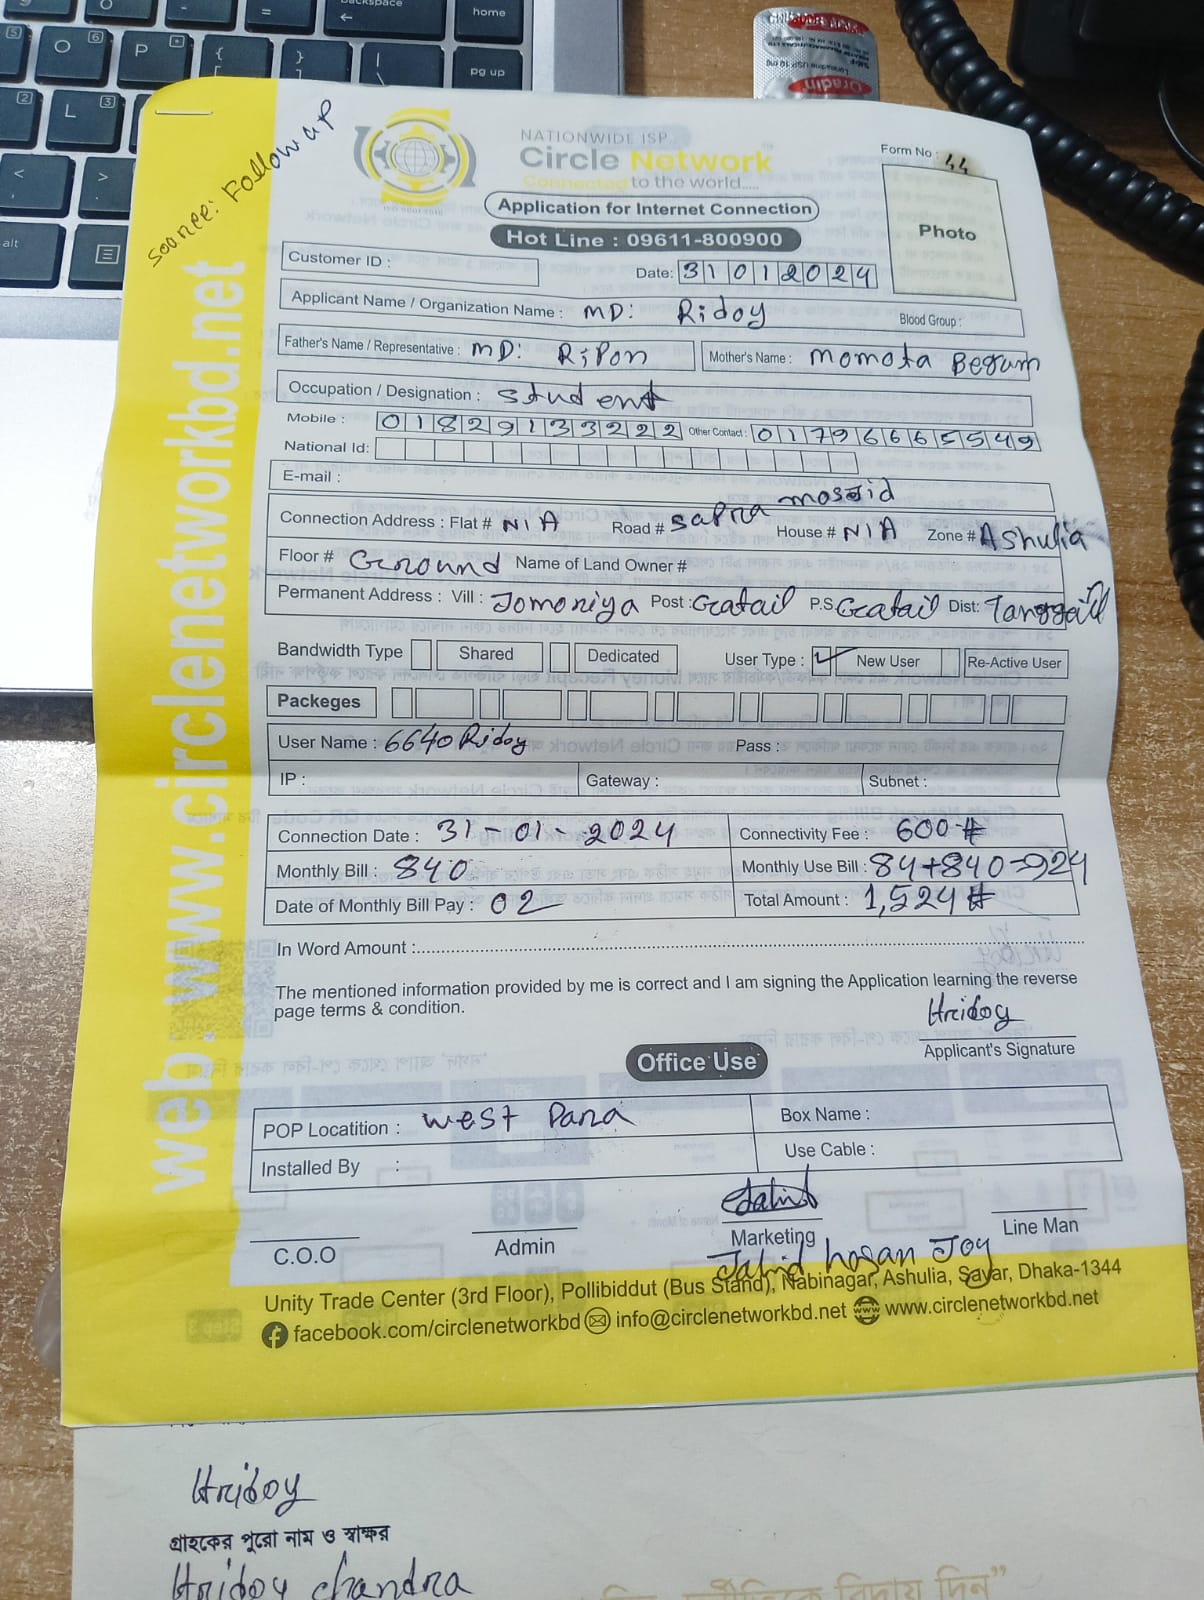 backspace
home
pg up
alt
Oradin
Loratadine USP 10 mg
source: Follow up
NATIONWIDE ISP
Circle Network
Connected to the world.....
Form No : 44
Application for Internet Connection
Hot Line : 09611-800900
Photo
Customer ID :
Date: 31012024
Applicant Name / Organization Name : MD: Ridoy Blood Group :
Father's Name / Representative : MD: Ripon Mother's Name : Momota Begum
Occupation / Designation : Student
Mobile : 01829133222 Other Contact : 01796665549
National Id:
E-mail :
Connection Address : Flat # N/A Road # Sapra mosjid House # N/A Zone # Ashulia
Floor # Ground Name of Land Owner #
Permanent Address : Vill : Jomoriya Post : Gatail P.S Gatail Dist: Tanggail
Bandwidth Type Shared Dedicated User Type : ✓ New User Re-Active User
Packeges
User Name : 6640Ridoy Pass :
IP : Gateway : Subnet :
Connection Date : 31-01-2024 Connectivity Fee : 600#
Monthly Bill : 840 Monthly Use Bill : 84+840=924
Date of Monthly Bill Pay : 02 Total Amount : 1,524#
In Word Amount :
The mentioned information provided by me is correct and I am signing the Application learning the reverse
page terms & condition.
Hridoy
Applicant's Signature
Office Use
POP Locatition : West Para Box Name :
Installed By : Use Cable :
Jahid
C.O.O Admin Marketing Line Man
Jahid hasan Joy
Unity Trade Center (3rd Floor), Pollibiddut (Bus Stand), Nabinagar, Ashulia, Savar, Dhaka-1344
facebook.com/circlenetworkbd info@circlenetworkbd.net www.circlenetworkbd.net
web : www.circlenetworkbd.net
Hridoy
গ্রাহকের পুরো নাম ও স্বাক্ষর
Hridoy chandra